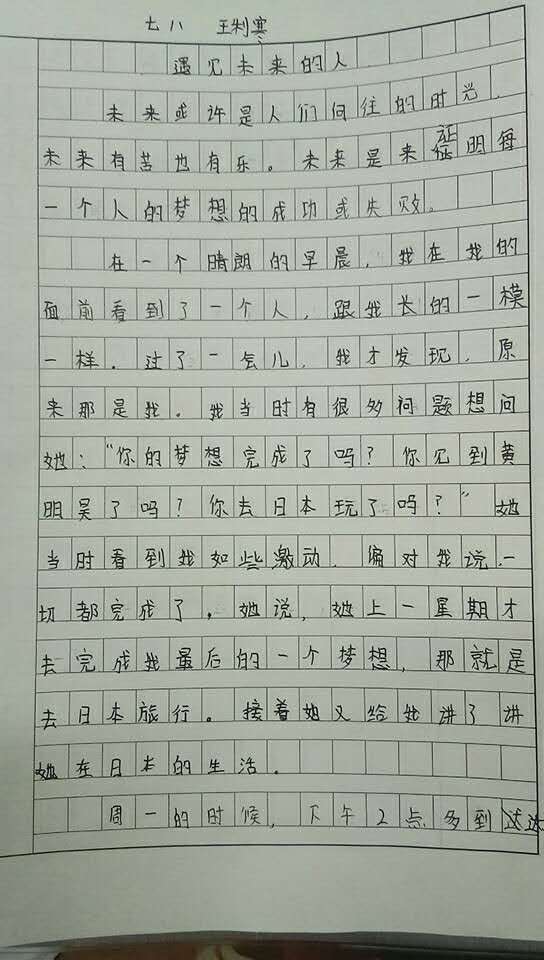 七八 王利寒
遇见未来的人
未来或许是人们向往的时光，
未来有苦也有乐。未来是来证明每
一个人的梦想的成功或失败。
在一个晴朗的早晨，我在我的
面前看到了一个人，跟我长的一模
一样．过了一会儿，我才发现，原
来那是我。我当时有很多问题想问
她：“你的梦想完成了吗？你见到黄
明昊了吗？你去日本玩了吗？”她
当时看到我如些激动．偏对我说．一
切都完成了．她说，她上一星期才
去完成我最后的一个梦想，那就是
去日本旅行。接着她又给我讲了讲
她在日本的生活．
周一的时候，下午2点多到达